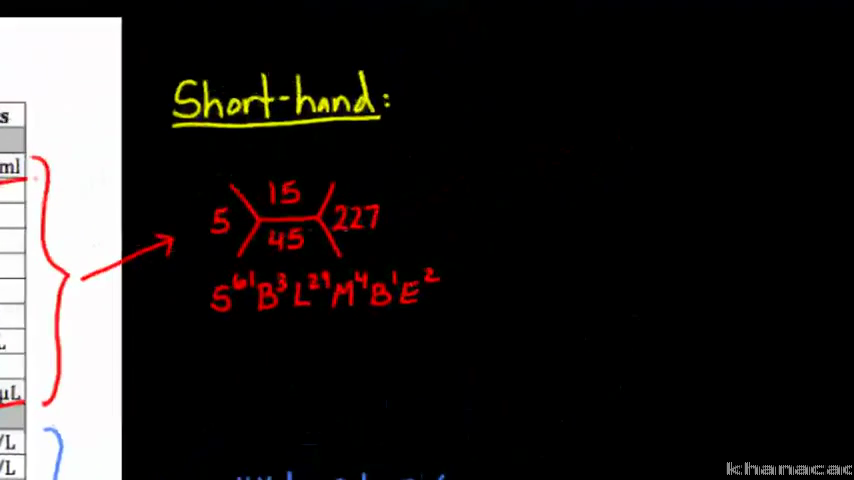 s
ml
L
µL
/L
/L
Short-hand:
15
5 227
45
S⁶¹B³L²⁹M⁴B¹E²
khanacac